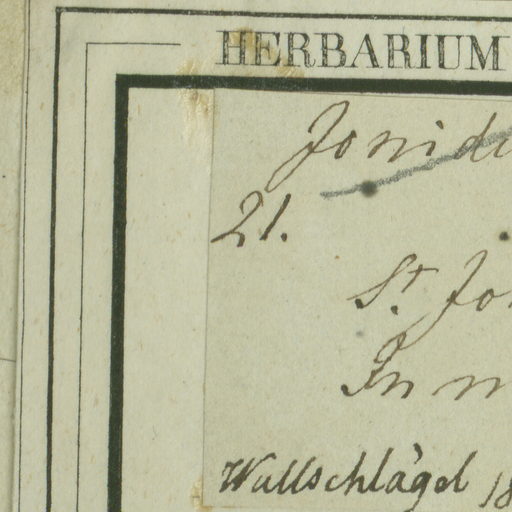 HERBARIUM
Jonidi
21.
St. Jo
In
Wullschlägel 18